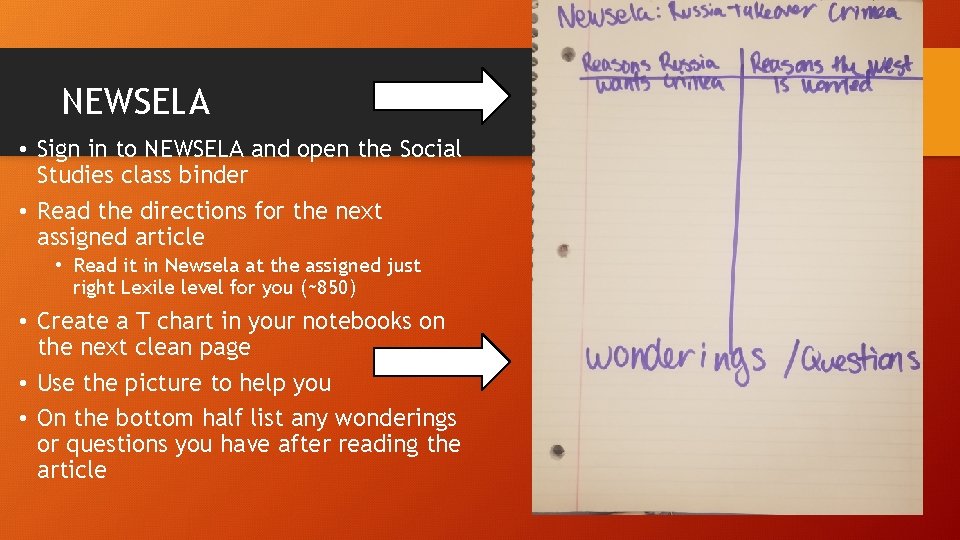 NEWSELA
• Sign in to NEWSELA and open the Social
Studies class binder
• Read the directions for the next
assigned article
• Read it in Newsela at the assigned just
right Lexile level for you (~850)
• Create a T chart in your notebooks on
the next clean page
• Use the picture to help you
• On the bottom half list any wonderings
or questions you have after reading the
article
Newsela: Russia takeover Crimea
Reasons Russia
wants Crimea
Reasons the west
is worried
wonderings /Questions